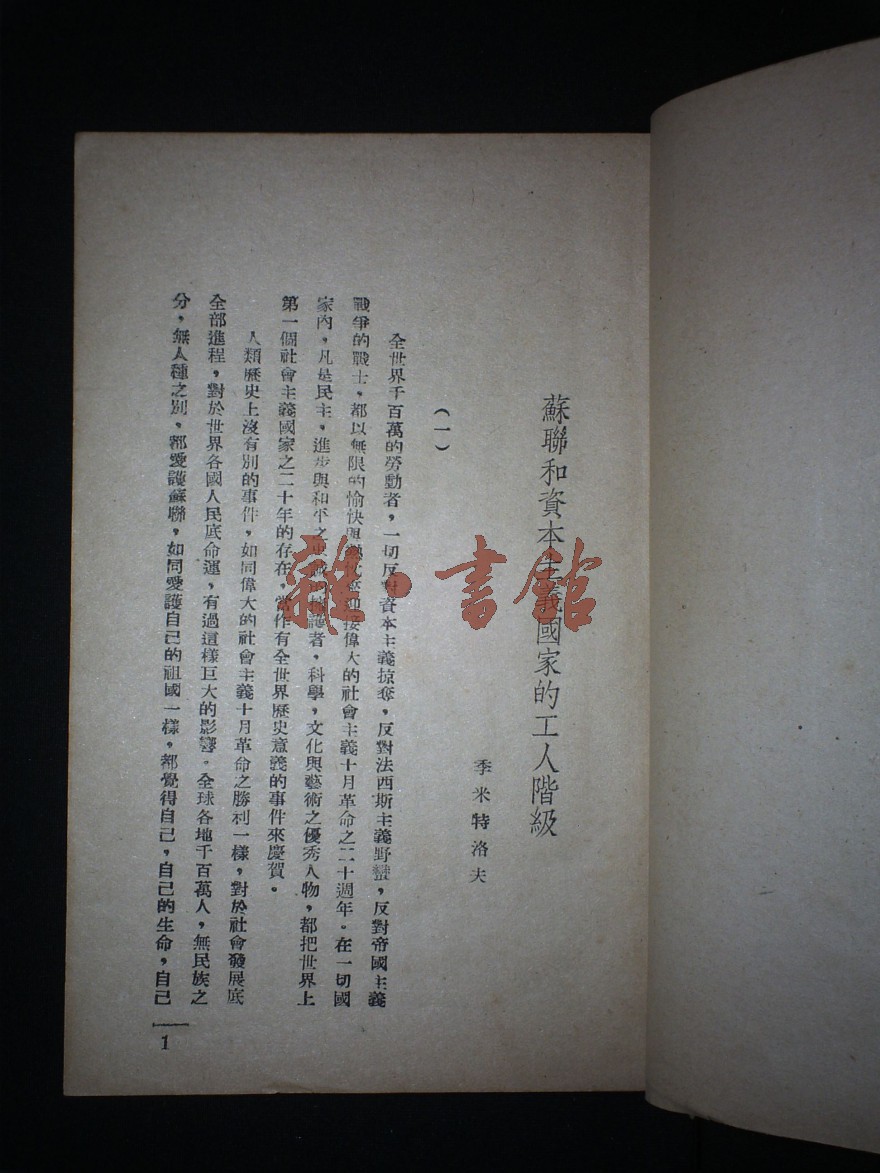 蘇聯和資本主義國家的工人階級
季米特洛夫
(一)
全世界千百萬的勞動者，一切反對資本主義掠奪，反對法西斯主義野蠻，反對帝國主義
戰爭的戰士，都以無限的愉快與接偉大的社會主義十月革命之二十週年。在一切國
家內，凡是民主，進步與和平之者，科學，文化與藝術之優秀人物，都把世界上
第一個社會主義國家之二十年的存在，當作有全世界歷史意義的事件來慶賀。
人類歷史上沒有別的事件，如同偉大的社會主義十月革命之勝利一樣，對於社會發展底
全部進程，對於世界各國人民底命運，有過這樣巨大的影響。全球各地千百萬人，無民族之
分，無人種之別，都愛護蘇聯，如同愛護自己的祖國一樣，都覺得自己，自己的生命，自己
1
雜·書館